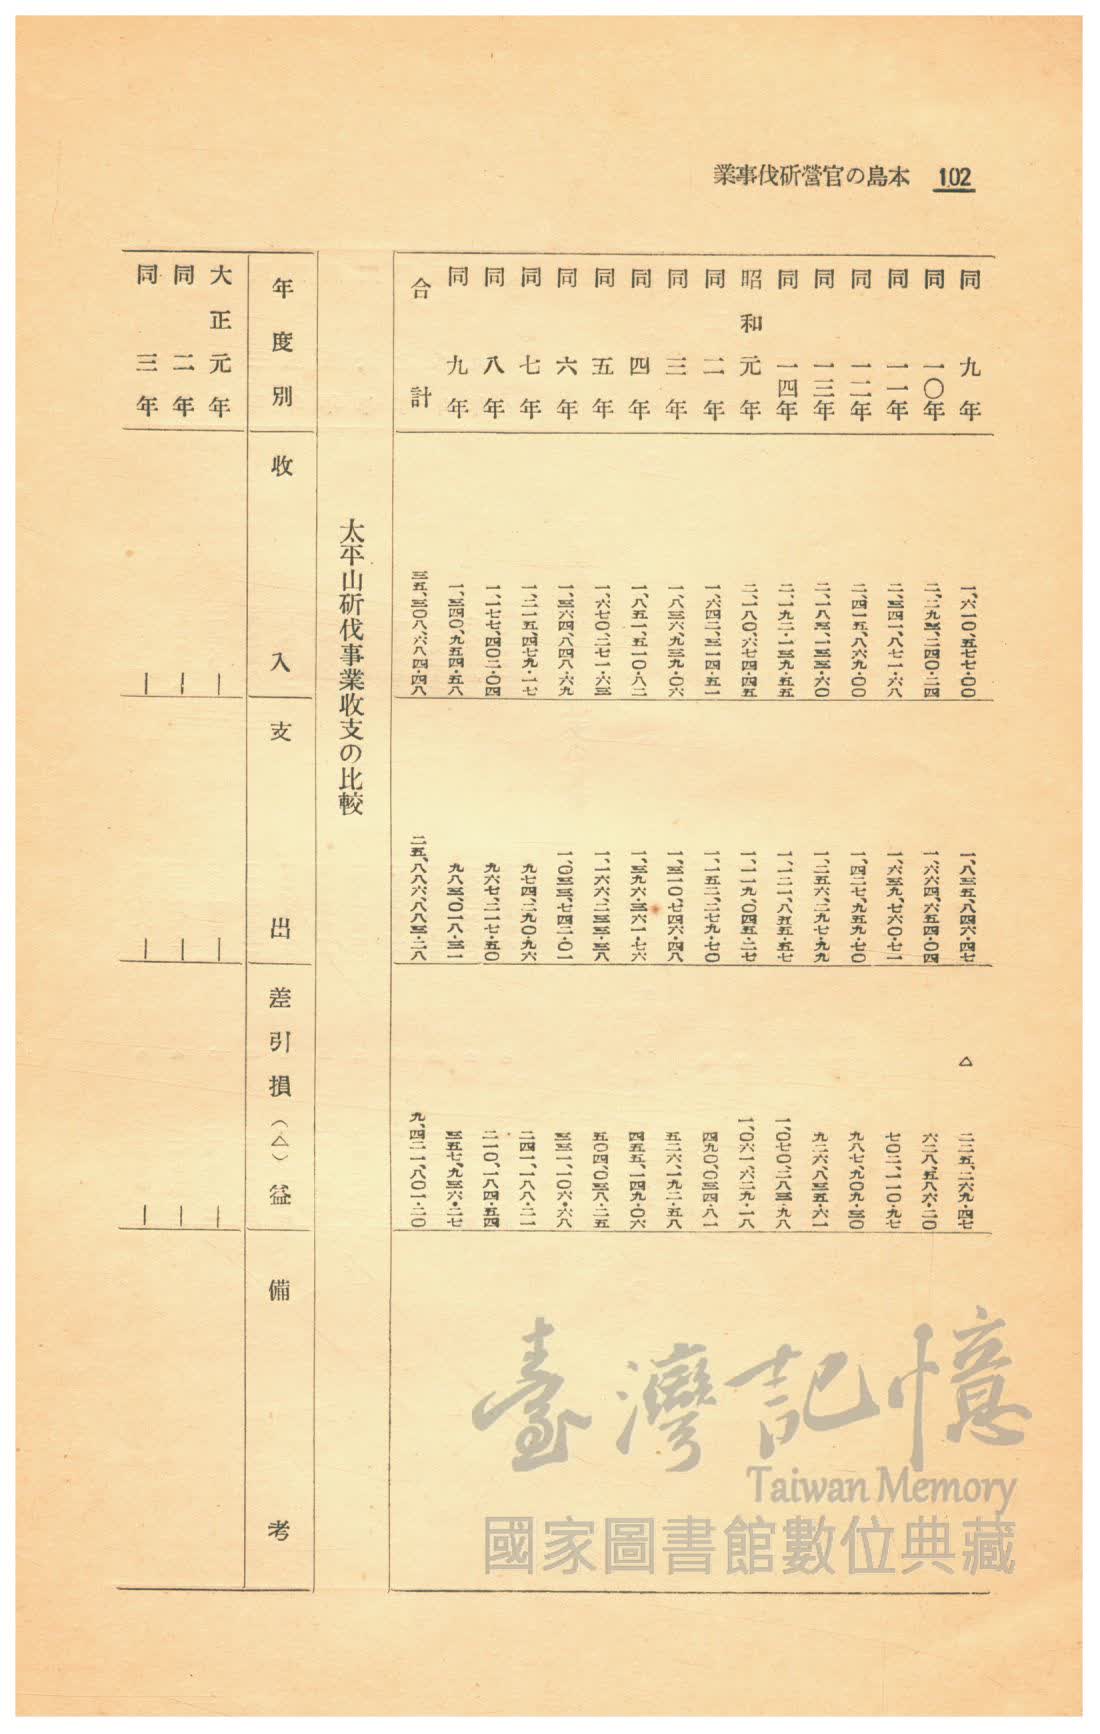 102 本島の官營斫伐事業
同九年 一、六一〇、五七七・〇〇 一、八三五、八四六・四七 △ 二二五、二六九・四七
同一〇年 二、二九三、二四〇・二四 一、六六四、六五四・〇四 六二八、五八六・二〇
同一一年 二、三四一、八七一・六八 一、六三九、七六〇・七一 七〇二、一一〇・九七
同一二年 二、四一五、八六九・〇〇 一、四二七、九五九・七〇 九八七、九〇九・三〇
同一三年 二、一八三、一三三・六〇 一、二五六、二九七・九九 九二六、八三五・六一
同一四年 二、一九二・一三九・五五 一、一二一、八五五・五七 一、〇七〇、二八三・九八
昭和元年 二、一八〇、六七四・四五 一、一一九、〇四五・二七 一、〇六一、六二九・一八
同二年 一、六四二、三一四・五一 一、一五二、二七九・七〇 四九〇、〇三四・八一
同三年 一、八三六、九三九・〇六 一、三一〇、七四六・四八 五二六、一九二・五八
同四年 一、八五一、五一〇・八二 一、三九六、三六一・七六 四五五、一四九・〇六
同五年 一、六七〇、二七一・六三 一、一六六、二三三・三八 五〇四、〇三八・二五
同六年 一、三六四、八四八・六九 一、〇三三、七四二・〇一 三三一、一〇六・六八
同七年 一、二一五、四七九・一七 九七四、二九〇・九六 二四一、一八八・二一
同八年 一、一七七、四〇二・〇四 九六七、二一七・五〇 二一〇、一八四・五四
同九年 一、三四〇、九五四・五八 九八三、〇一八・三一 三五七、九三六・二七
合計 三五、三〇八、六八四・四八 二五、八八六、八八三・二八 九、四二一、八〇一・二〇
太平山斫伐事業收支の比較
年度別 收入 支出 差引損（△）益 備考
大正元年 ― ― ―
同二年 ― ― ―
同三年 ― ― ―
臺灣記憶
Taiwan Memory
國家圖書館數位典藏